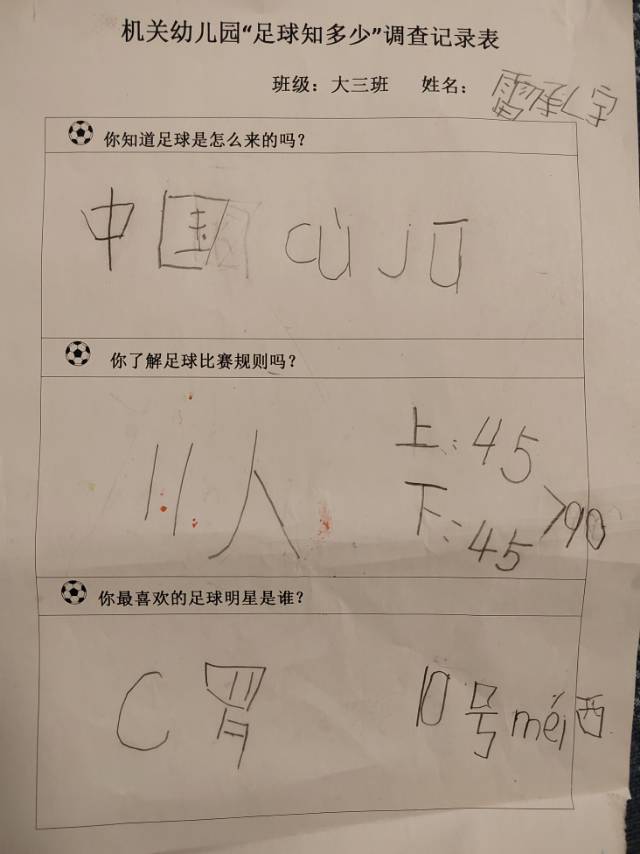 机关幼儿园“足球知多少”调查记录表
班级：大三班 姓名：
你知道足球是怎么来的吗？
中国 cù jū
你了解足球比赛规则吗？
11人
上：45
下：45 >90
你最喜欢的足球明星是谁？
C罗 10号méi西